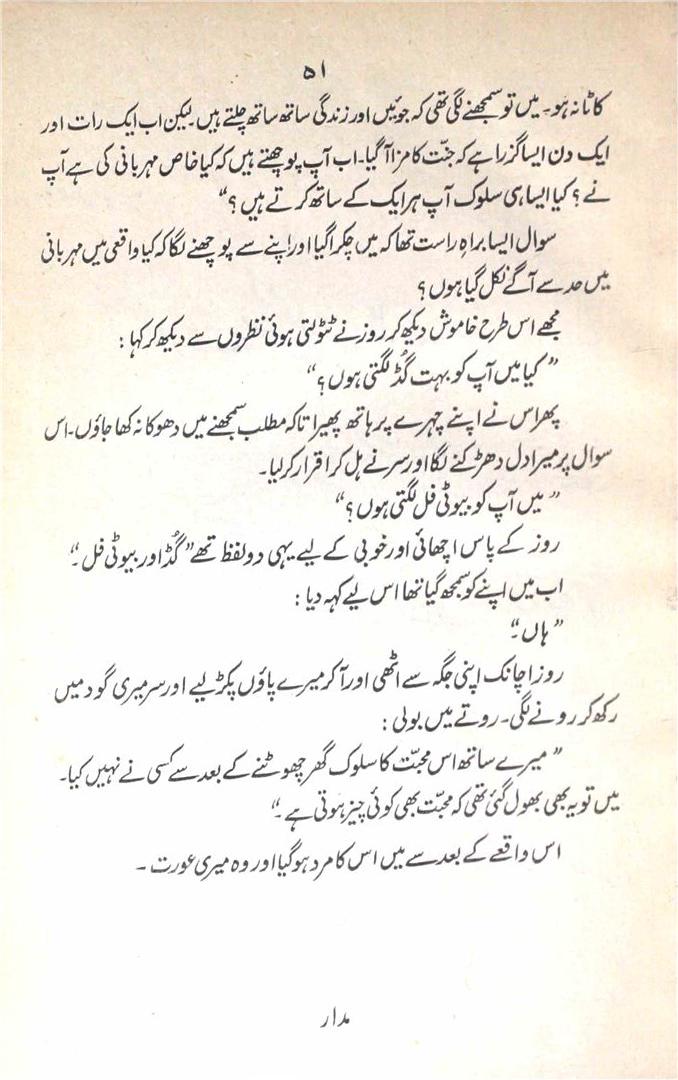 ۵۱
کاٹا نہ ہو۔ میں تو سمجھنے لگی تھی کہ جوئیں اور زندگی ساتھ ساتھ چلتے ہیں۔ لیکن اب ایک رات اور
ایک دن ایسا گزرا ہے کہ جنّت کا مزا آ گیا۔ اب آپ پوچھتے ہیں کہ کیا خاص مہربانی کی ہے آپ
نے؟ کیا ایسا ہی سلوک آپ ہر ایک کے ساتھ کرتے ہیں؟“
سوال ایسا براہِ راست تھا کہ میں چکرا گیا اور اپنے سے پوچھنے لگا کہ کیا واقعی میں مہربانی
میں حد سے آگے نکل گیا ہوں؟
مجھے اس طرح خاموش دیکھ کر روز نے ٹٹولتی ہوئی نظروں سے دیکھ کر کہا:
”کیا میں آپ کو بہت گُڈ لگتی ہوں؟“
پھر اس نے اپنے چہرے پر ہاتھ پھیرا تاکہ مطلب سمجھنے میں دھوکا نہ کھا جاؤں۔ اس
سوال پر میرا دل دھڑکنے لگا اور سر نے ہل کر اقرار کر لیا۔
”میں آپ کو بیوٹی فل لگتی ہوں؟“
روز کے پاس اچھائی اور خوبی کے لیے یہی دو لفظ تھے ”گُڈ اور بیوٹی فل۔“
اب میں اپنے کو سمجھ گیا تھا اس لیے کہہ دیا:
”ہاں۔“
روز اچانک اپنی جگہ سے اٹھی اور آ کر میرے پاؤں پکڑ لیے اور سر میری گود میں
رکھ کر رونے لگی۔ روتے میں بولی:
”میرے ساتھ اس محبّت کا سلوک گھر چھوٹنے کے بعد سے کسی نے نہیں کیا۔
میں تو یہ بھی بھول گئی تھی کہ محبّت بھی کوئی چیز ہوتی ہے۔“
اس واقعے کے بعد سے میں اس کا مرد ہو گیا اور وہ میری عورت۔
مدار